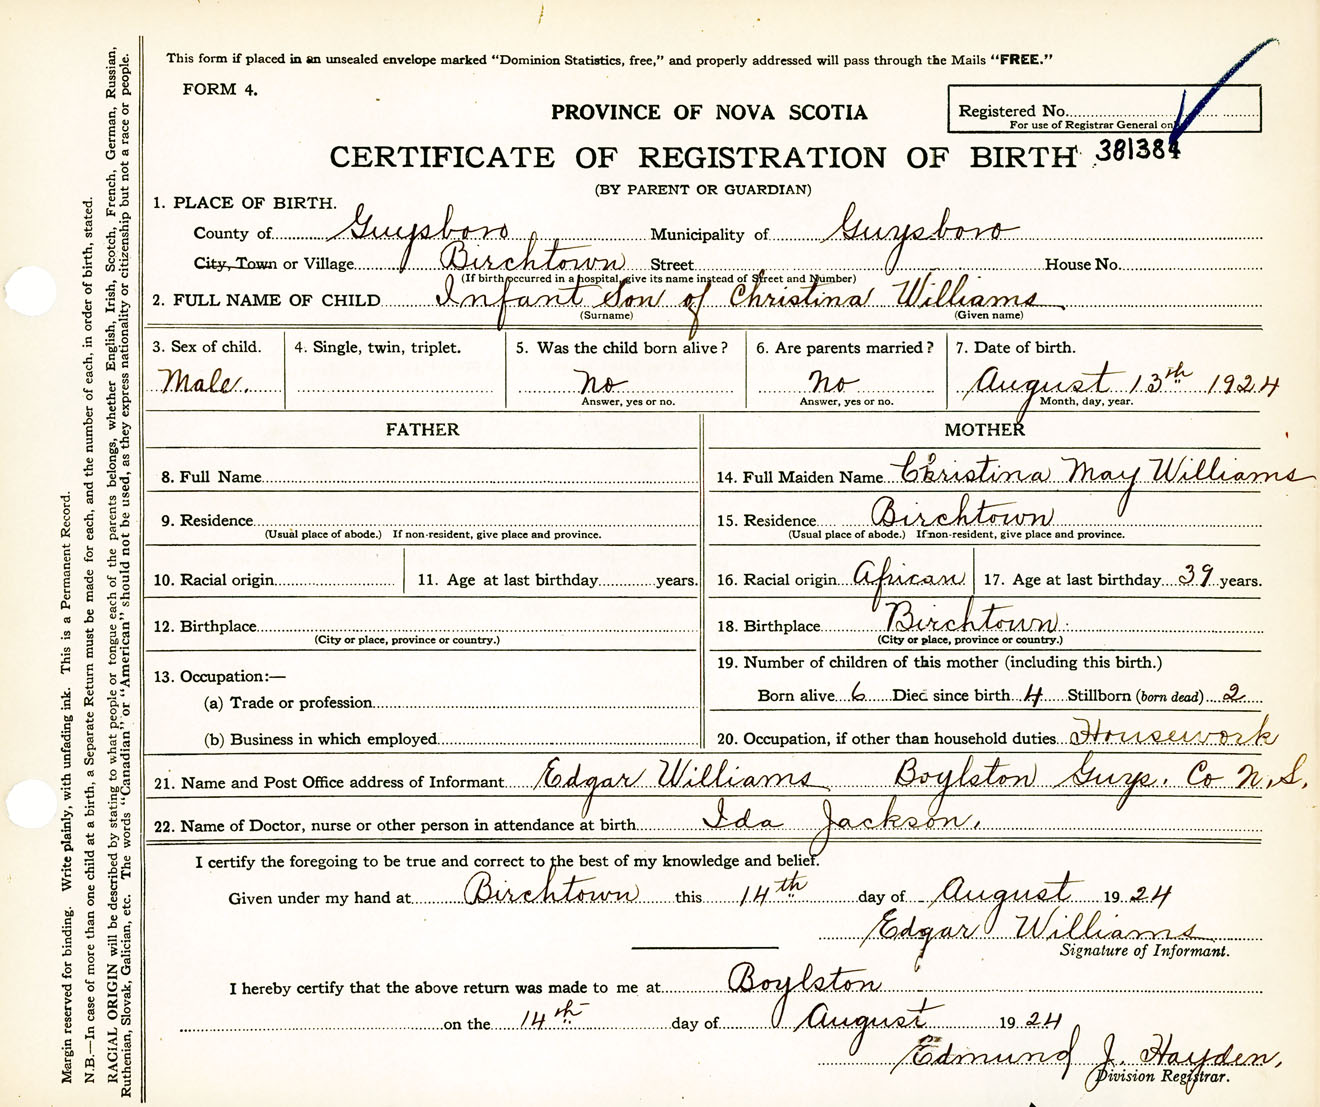 This form if placed in an unsealed envelope marked "Dominion Statistics, free," and properly addressed will pass through the Mails "FREE."
FORM 4.
PROVINCE OF NOVA SCOTIA
Registered No.
For use of Registrar General only
CERTIFICATE OF REGISTRATION OF BIRTH 381384
(BY PARENT OR GUARDIAN)
1. PLACE OF BIRTH.
County of Guysboro Municipality of Guysboro
City, Town or Village Birchtown Street House No.
(If birth occurred in a hospital, give its name instead of Street and Number)
2. FULL NAME OF CHILD Infant Son of Christina Williams
(Surname) (Given name)
3. Sex of child. 4. Single, twin, triplet. 5. Was the child born alive? 6. Are parents married? 7. Date of birth.
Male. no no August 13th 1924
Answer, yes or no. Answer, yes or no. Month, day, year.
FATHER
8. Full Name
9. Residence
(Usual place of abode.) If non-resident, give place and province.
10. Racial origin 11. Age at last birthday years.
12. Birthplace
(City or place, province or country.)
13. Occupation:—
(a) Trade or profession
(b) Business in which employed
MOTHER
14. Full Maiden Name Christina May Williams
15. Residence Birchtown
(Usual place of abode.) If non-resident, give place and province.
16. Racial origin African 17. Age at last birthday 39 years.
18. Birthplace Birchtown
(City or place, province or country.)
19. Number of children of this mother (including this birth.)
Born alive 6 Died since birth 4 Stillborn (born dead) 2
20. Occupation, if other than household duties Housework
21. Name and Post Office address of Informant Edgar Williams Boylston Guys. Co N.S.
22. Name of Doctor, nurse or other person in attendance at birth Ida Jackson.
I certify the foregoing to be true and correct to the best of my knowledge and belief.
Given under my hand at Birchtown this 14th day of August 1924
Edgar Williams
Signature of Informant.
I hereby certify that the above return was made to me at Boylston
on the 14th day of August 1924
Edmund J. Hayden,
Division Registrar.
Margin reserved for binding. Write plainly, with unfading ink. This is a Permanent Record.
N.B.—In case of more than one child at a birth, a Separate Return must be made for each, and the number of each, in order of birth, stated.
RACIAL ORIGIN will be described by stating to what people or tongue each of the parents belongs, whether English, Irish, Scotch, French, German, Russian,
Ruthenian, Slovak, Galician, etc. The words "Canadian" or "American" should not be used, as they express nationality or citizenship but not a race or people.